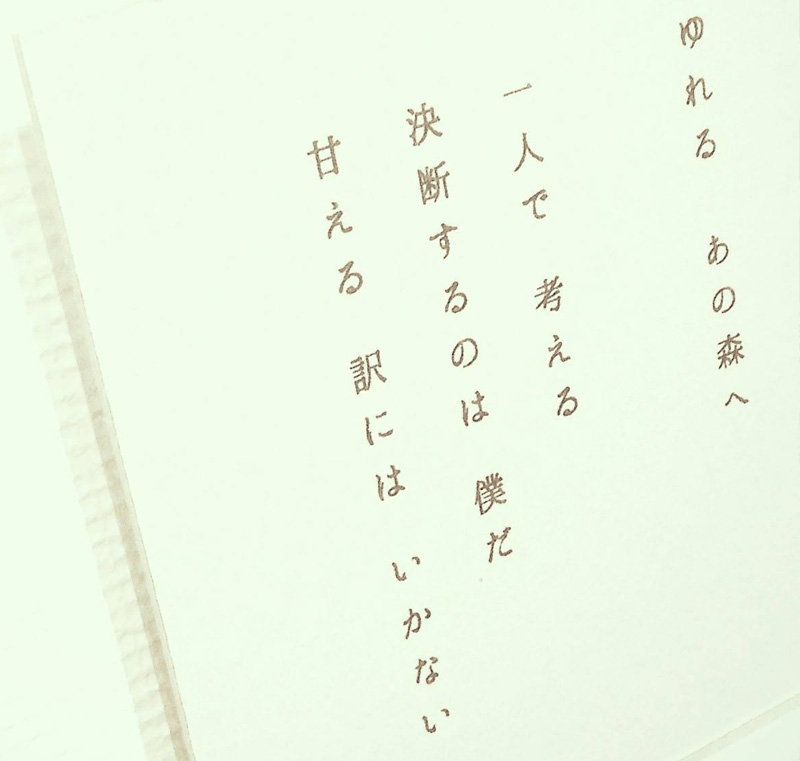 ゆれる　あの森へ
一人で　考える
決断するのは　僕だ
甘える　訳には　いかない